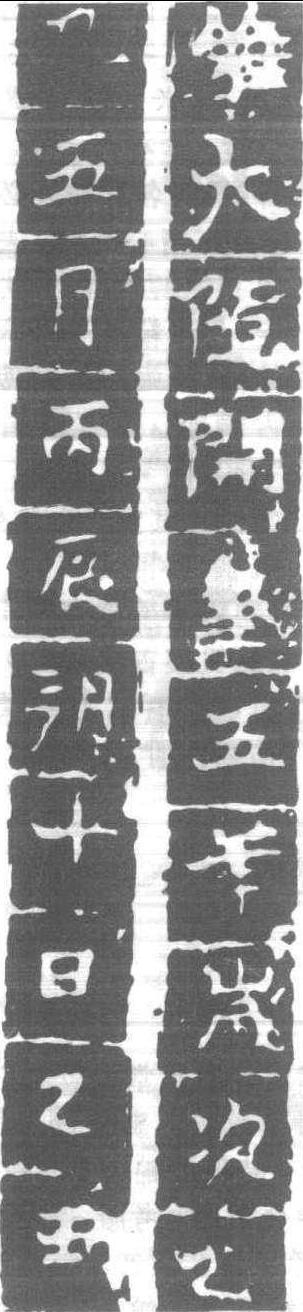 大隋開皇五年歲次乙
五月丙辰朔十日乙丑